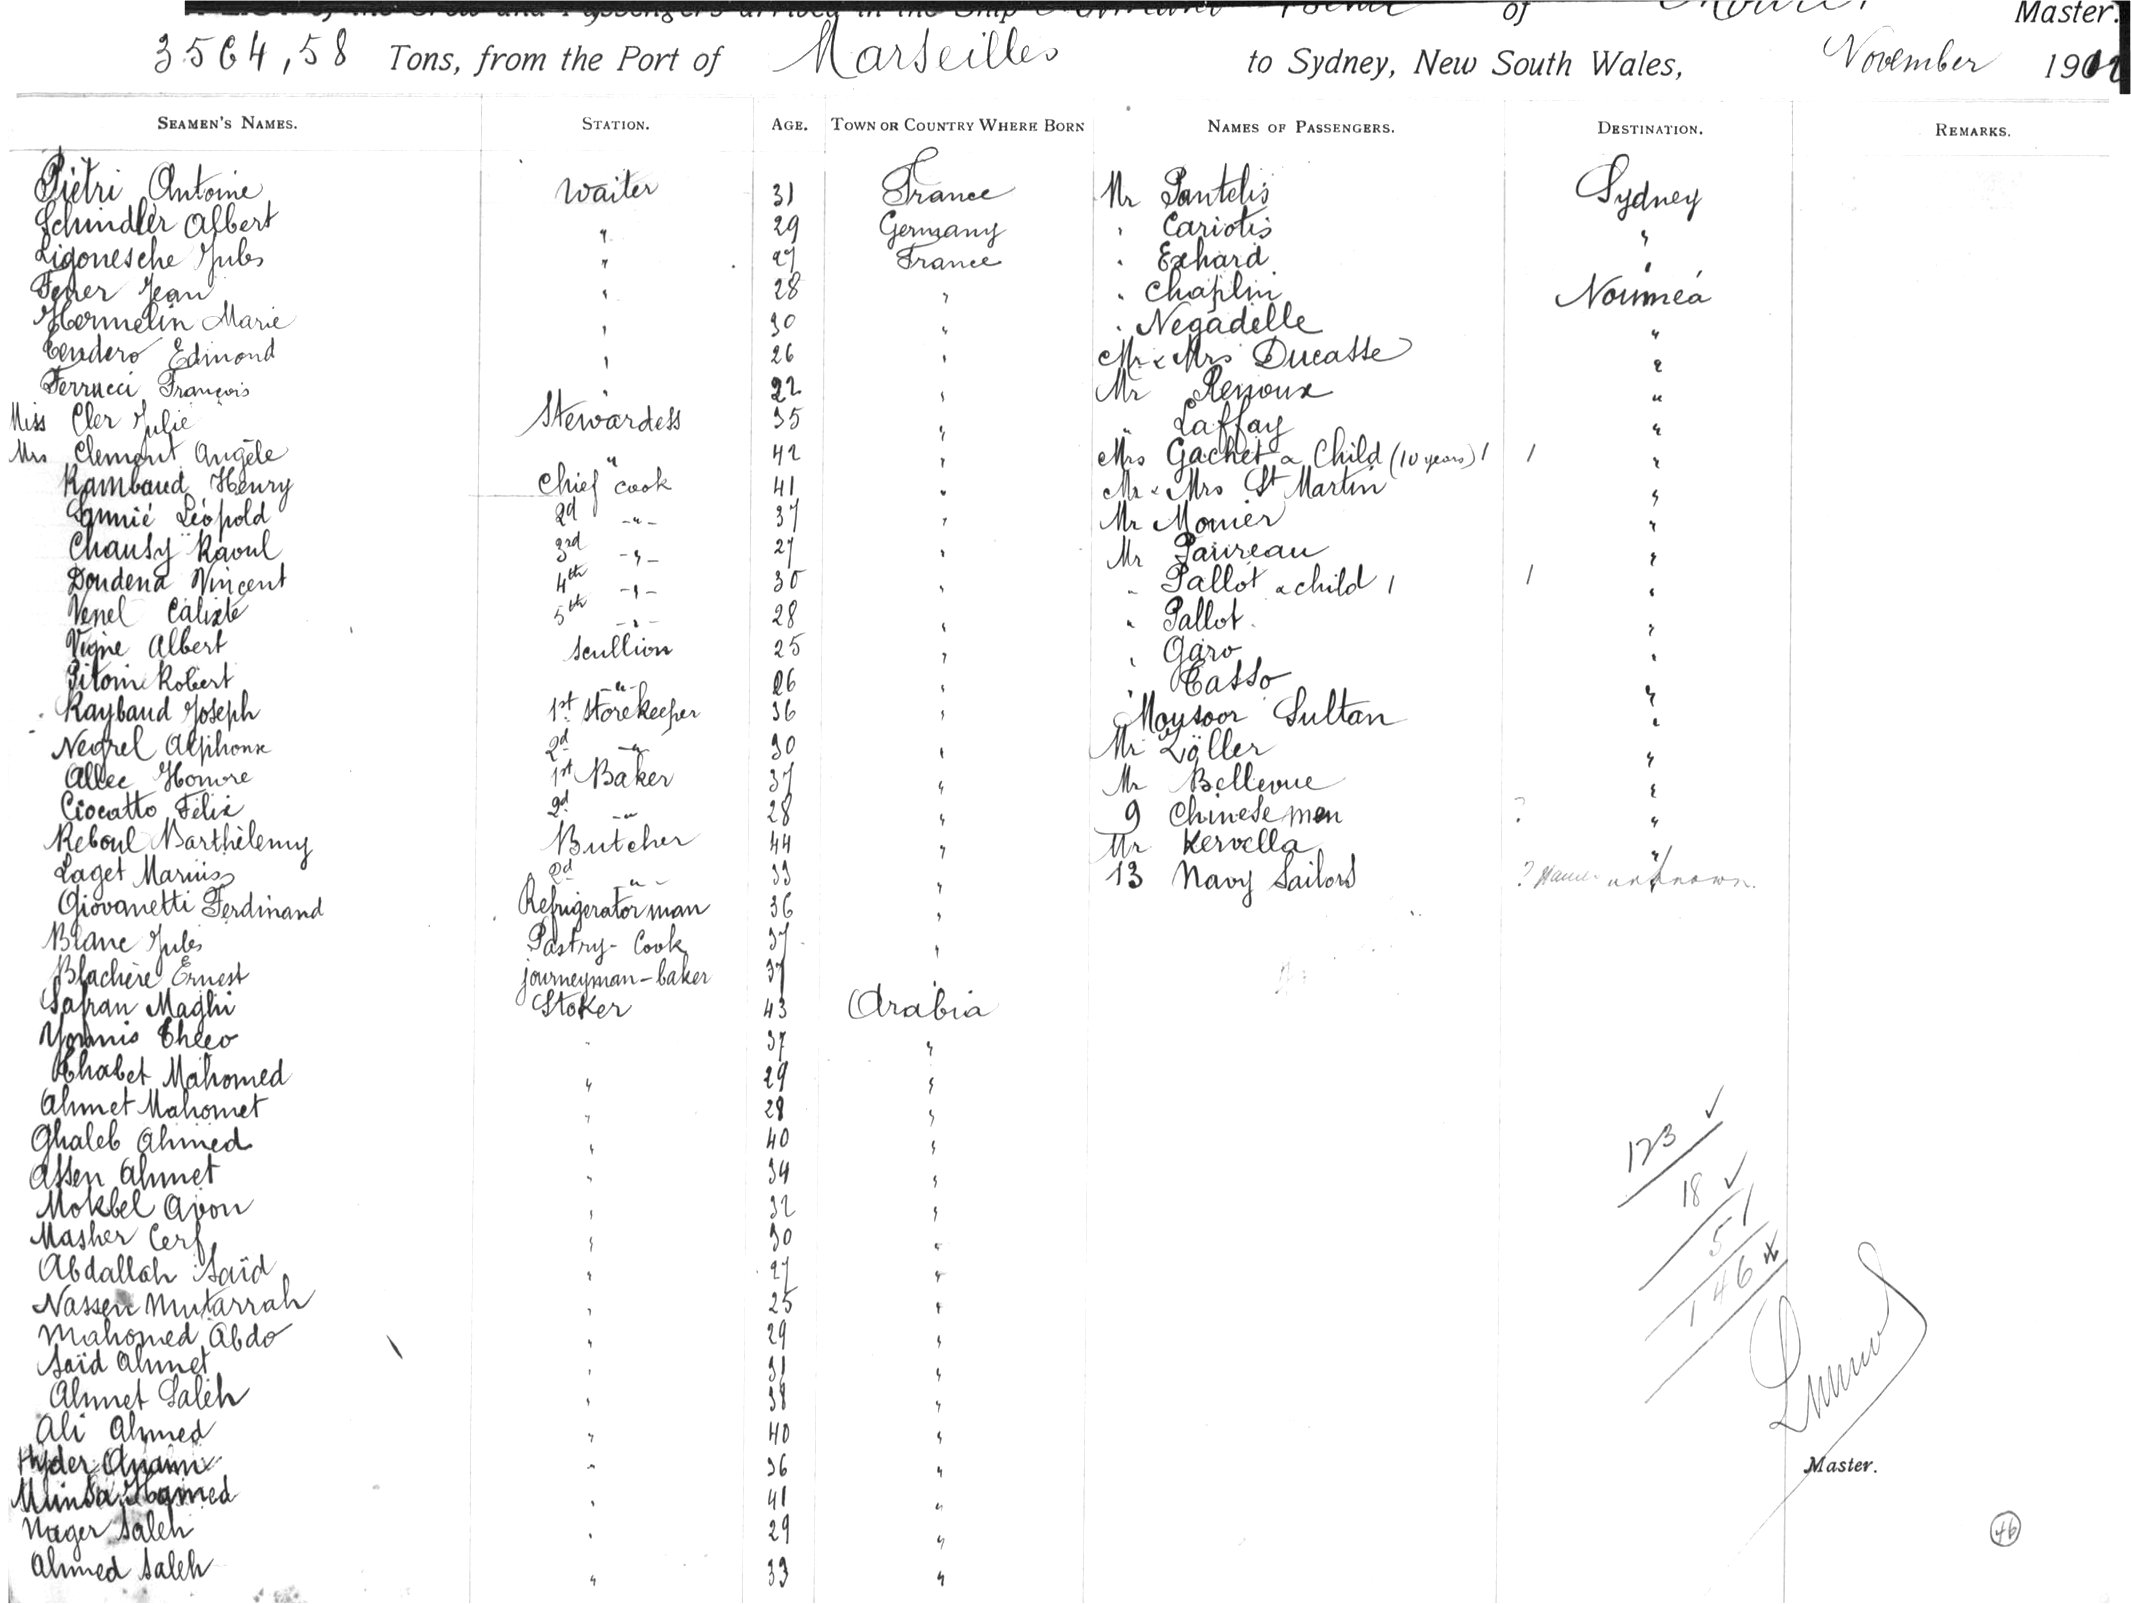 A List of the Crew and Passengers arrived in the Ship of Master.
3564,58 Tons, from the Port of Marseilles to Sydney, New South Wales, November 190
SEAMEN'S NAMES. STATION. AGE. TOWN OR COUNTRY WHERE BORN NAMES OF PASSENGERS. DESTINATION. REMARKS.
Piétri Antoine Waiter 31 France Mr Pantelis Sydney
Schindler Albert " 29 Germany " Cariotis "
Ligonesche Jules " 27 France " Exhard "
Ferrer Jean " 28 " " Chaplin Nouméa
Hermelin Marie " 30 " " Negadelle "
Cendero Edmond " 26 " Mr & Mrs Ducasse "
Ferrucci François " 22 " Mr Renoux "
Miss Cler Julie Stewardess 35 " " Laffay "
Mrs Clement Angèle " 42 " Mrs Gachet & Child (10 years) 1 1 "
Rambaud Henry Chief cook 41 " Mr & Mrs St Martin "
Lannié Léopold 2d -"- 37 " Mr Monier "
Chausy Raoul 3rd -"- 27 " Mr Paureau "
Doudena Vincent 4th -"- 30 " " Pallot & child 1 1 "
Venel Calixte 5th -"- 28 " " Pallot "
Vigne Albert Scullion 25 " " Garo "
Pitoin Robert -"- 26 " " Casso "
Raybaud Joseph 1st Storekeeper 36 " Mousoor Sultan "
Negrel Alphonse 2d -"- 30 " Mr Zöller "
Allee Honore 1st Baker 37 " Mr Bellevue "
Ciocatto Félix 2d -"- 28 " 9 Chinese men ? "
Reboul Barthélemy Butcher 44 " Mr Kervella "
Laget Marius 2d -"- 33 " 13 Navy Sailors ? Names unknown. "
Giovanetti Ferdinand Refrigerator man 36 "
Blanc Jules Pastry-Cook 37 "
Blachère Ernest journeyman-baker 37 "
Safran Maghi Stoker 43 Arabia
Younis Cheeo " 37 "
Chabet Mahomed " 29 "
Ahmet Mahomet " 28 "
Ghaleb Ahmed " 40 "
Assen Ahmet " 34 "
Mokbel Avon " 32 "
Masher Cerf " 30 "
Abdallah Saïd " 27 "
Nassen Mutarrah " 25 "
Mahomed Abdo " 29 "
Saïd Ahmet " 31 "
Ahmet Saleh " 38 "
Ali Ahmed " 40 "
Hyder " 36 "
Hamed " 41 "
Nager Saleh " 29 "
Ahmed Saleh " 33 "
123
18
5
146
Master.
46